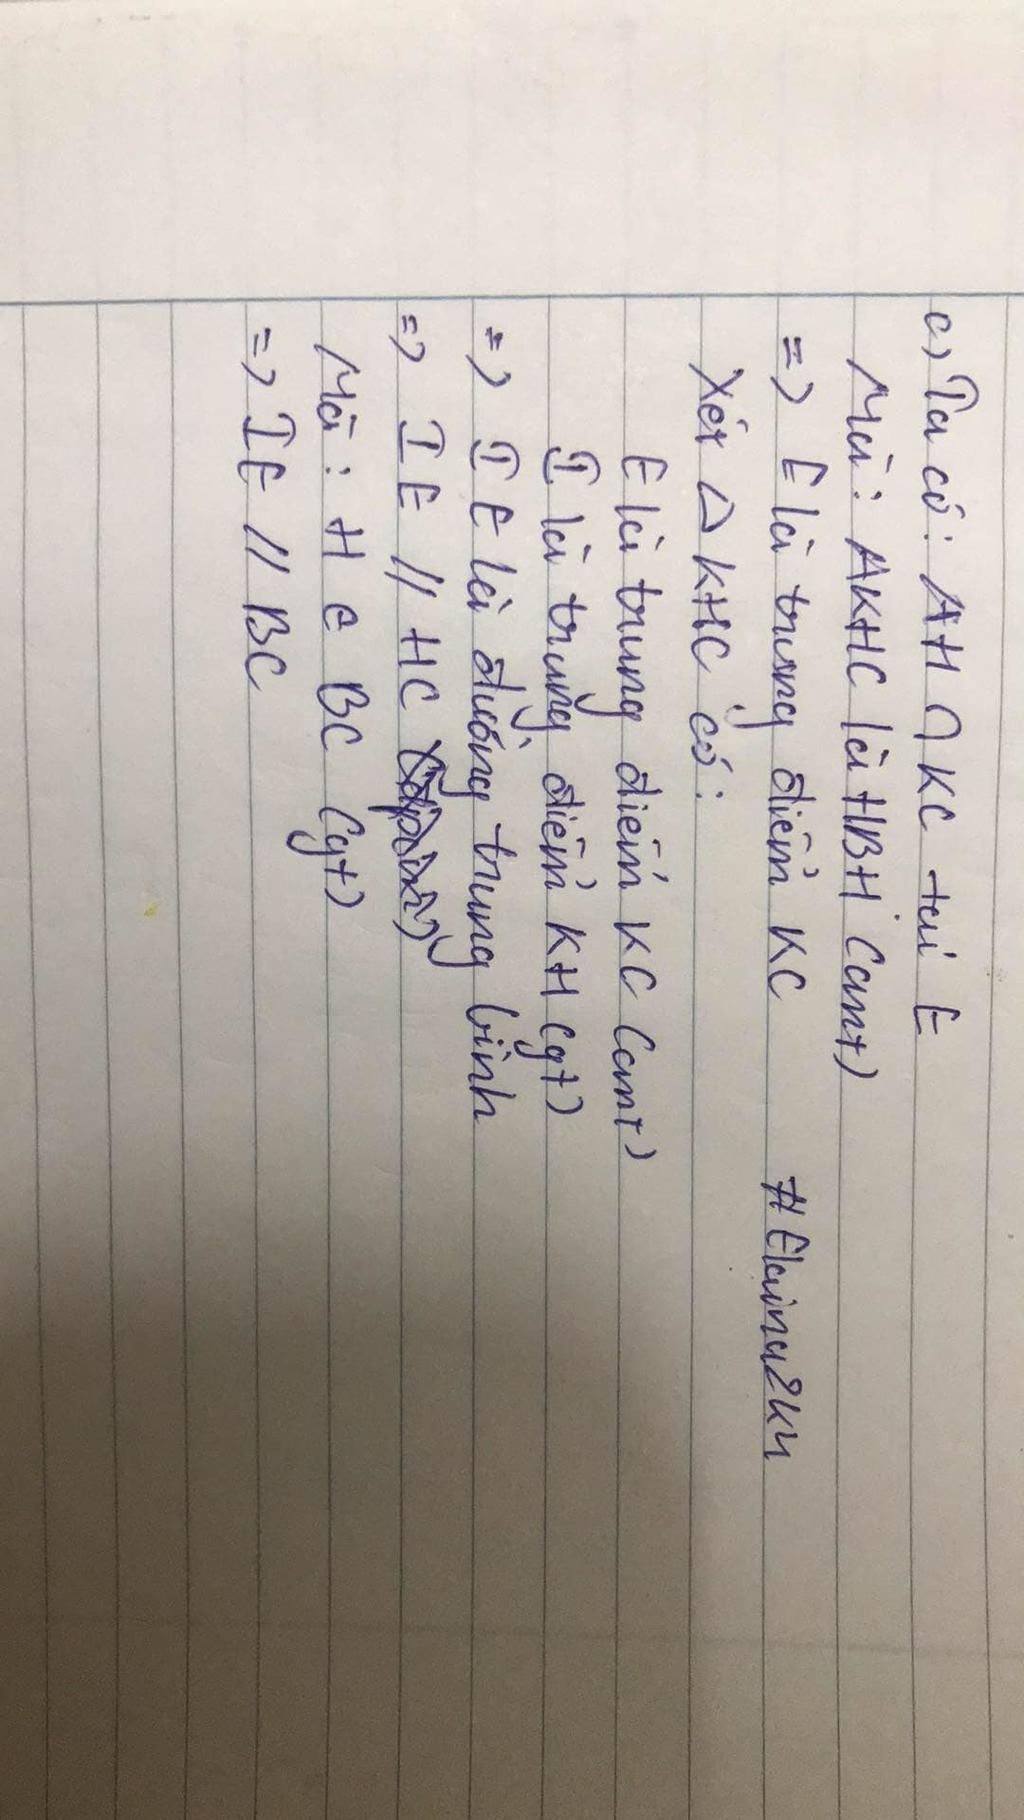 c) Ta có: AH ∩ KC tại E
Mà: AKHC là HBH (cmt)
=> E là trung điểm KC
#Elaina2k4
Xét △KHC có:
E là trung điểm KC (cmt)
I là trung điểm KH (gt)
=> IE là đường trung bình
=> IE // HC
Mà: H ∈ BC (gt)
=> IE // BC